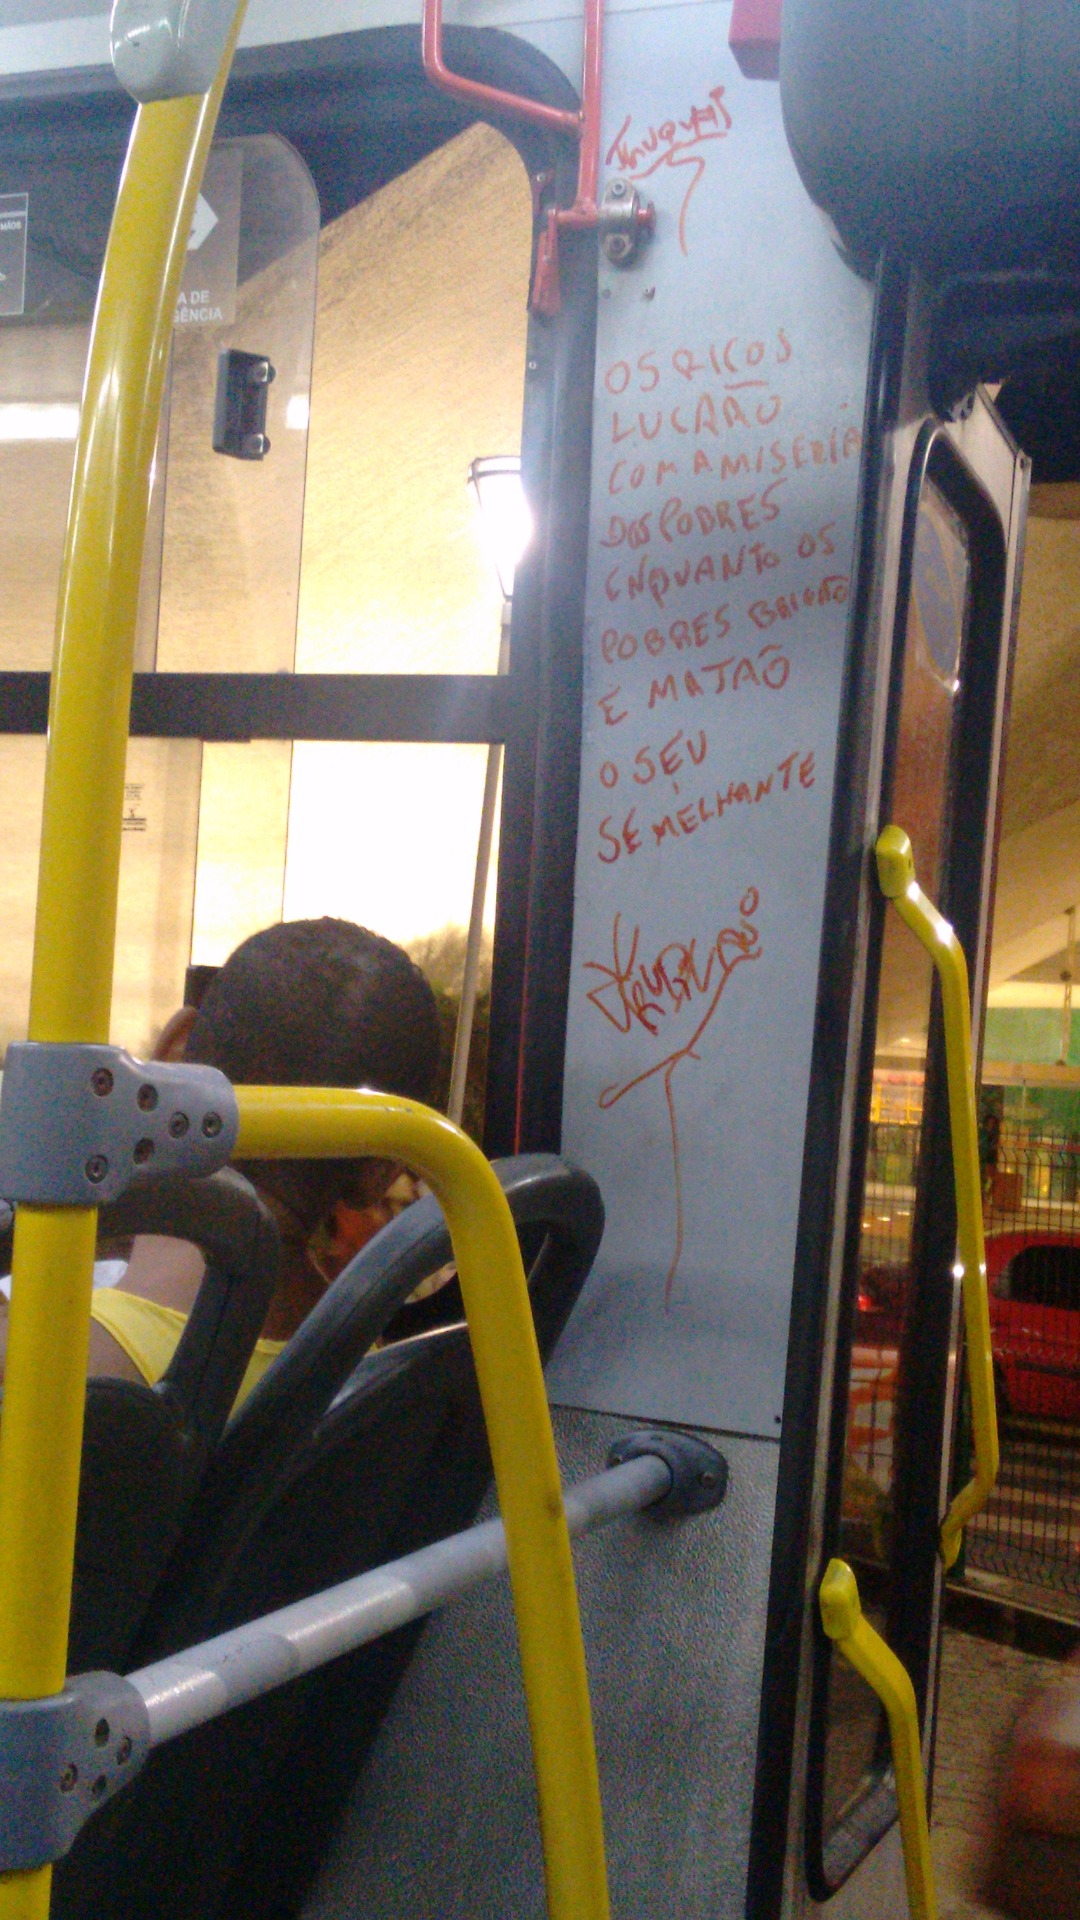 MÃOS
A DE
GÊNCIA
OS RICOS
LUCRÃO
COM A MISERIA
DOS POBRES
ENQUANTO OS
POBRES BRIGÃO
E MATAÕ
O SEU
SEMELHANTE